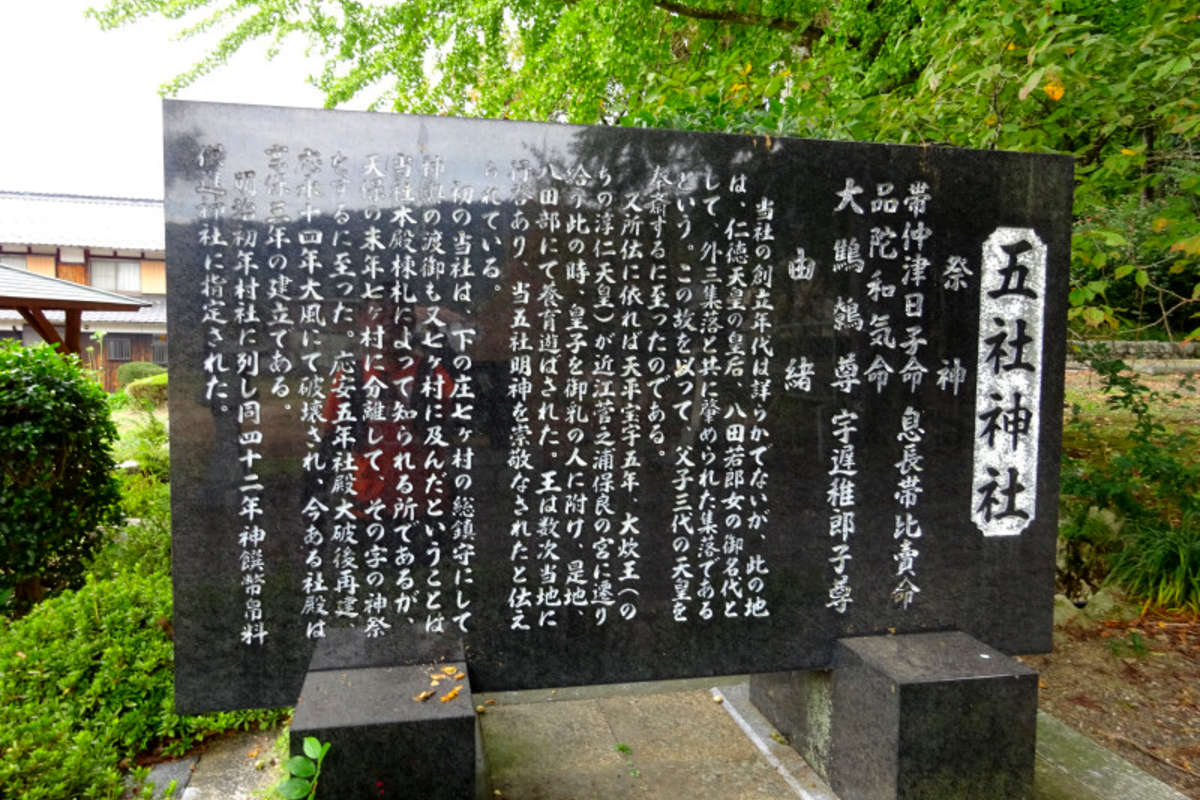 五社神社
祭神
帯仲津日子命 息長帯比賣命
品陀和気命
大鷦鷯尊 宇遅稚郎子尊
由緒
当社の創立年代は詳らかでないが、此の地
は、仁徳天皇の皇后、八田若郎女の御名代と
して、外三集落と共に肇められた集落である
という。この故を以って、父子三代の天皇を
奉斎するに至ったのである。
又所伝に依れば天平宝字五年、大炊王(の
ちの淳仁天皇)が近江菅之浦保良の宮に遷り
給う此の時、皇子を御乳の人に附け、是地、
八田部にて養育遊ばされた。王は数次当地に
行啓あり、当五社明神を崇敬なされたと伝え
られている。
初の当社は、下の庄七ヶ村の総鎮守にして
神輿の渡御も又七ヶ村に及んだということは
当社本殿棟札によって知られる所であるが、
天保の末年七ヶ村に分離して、その字の神祭
をするに至った。応安五年社殿大破後再建
十四年大風にて破壊され、今ある社殿は
三年の建立である。
明治初年村社に列し同四十二年神饌幣帛料
供進神社に指定された。